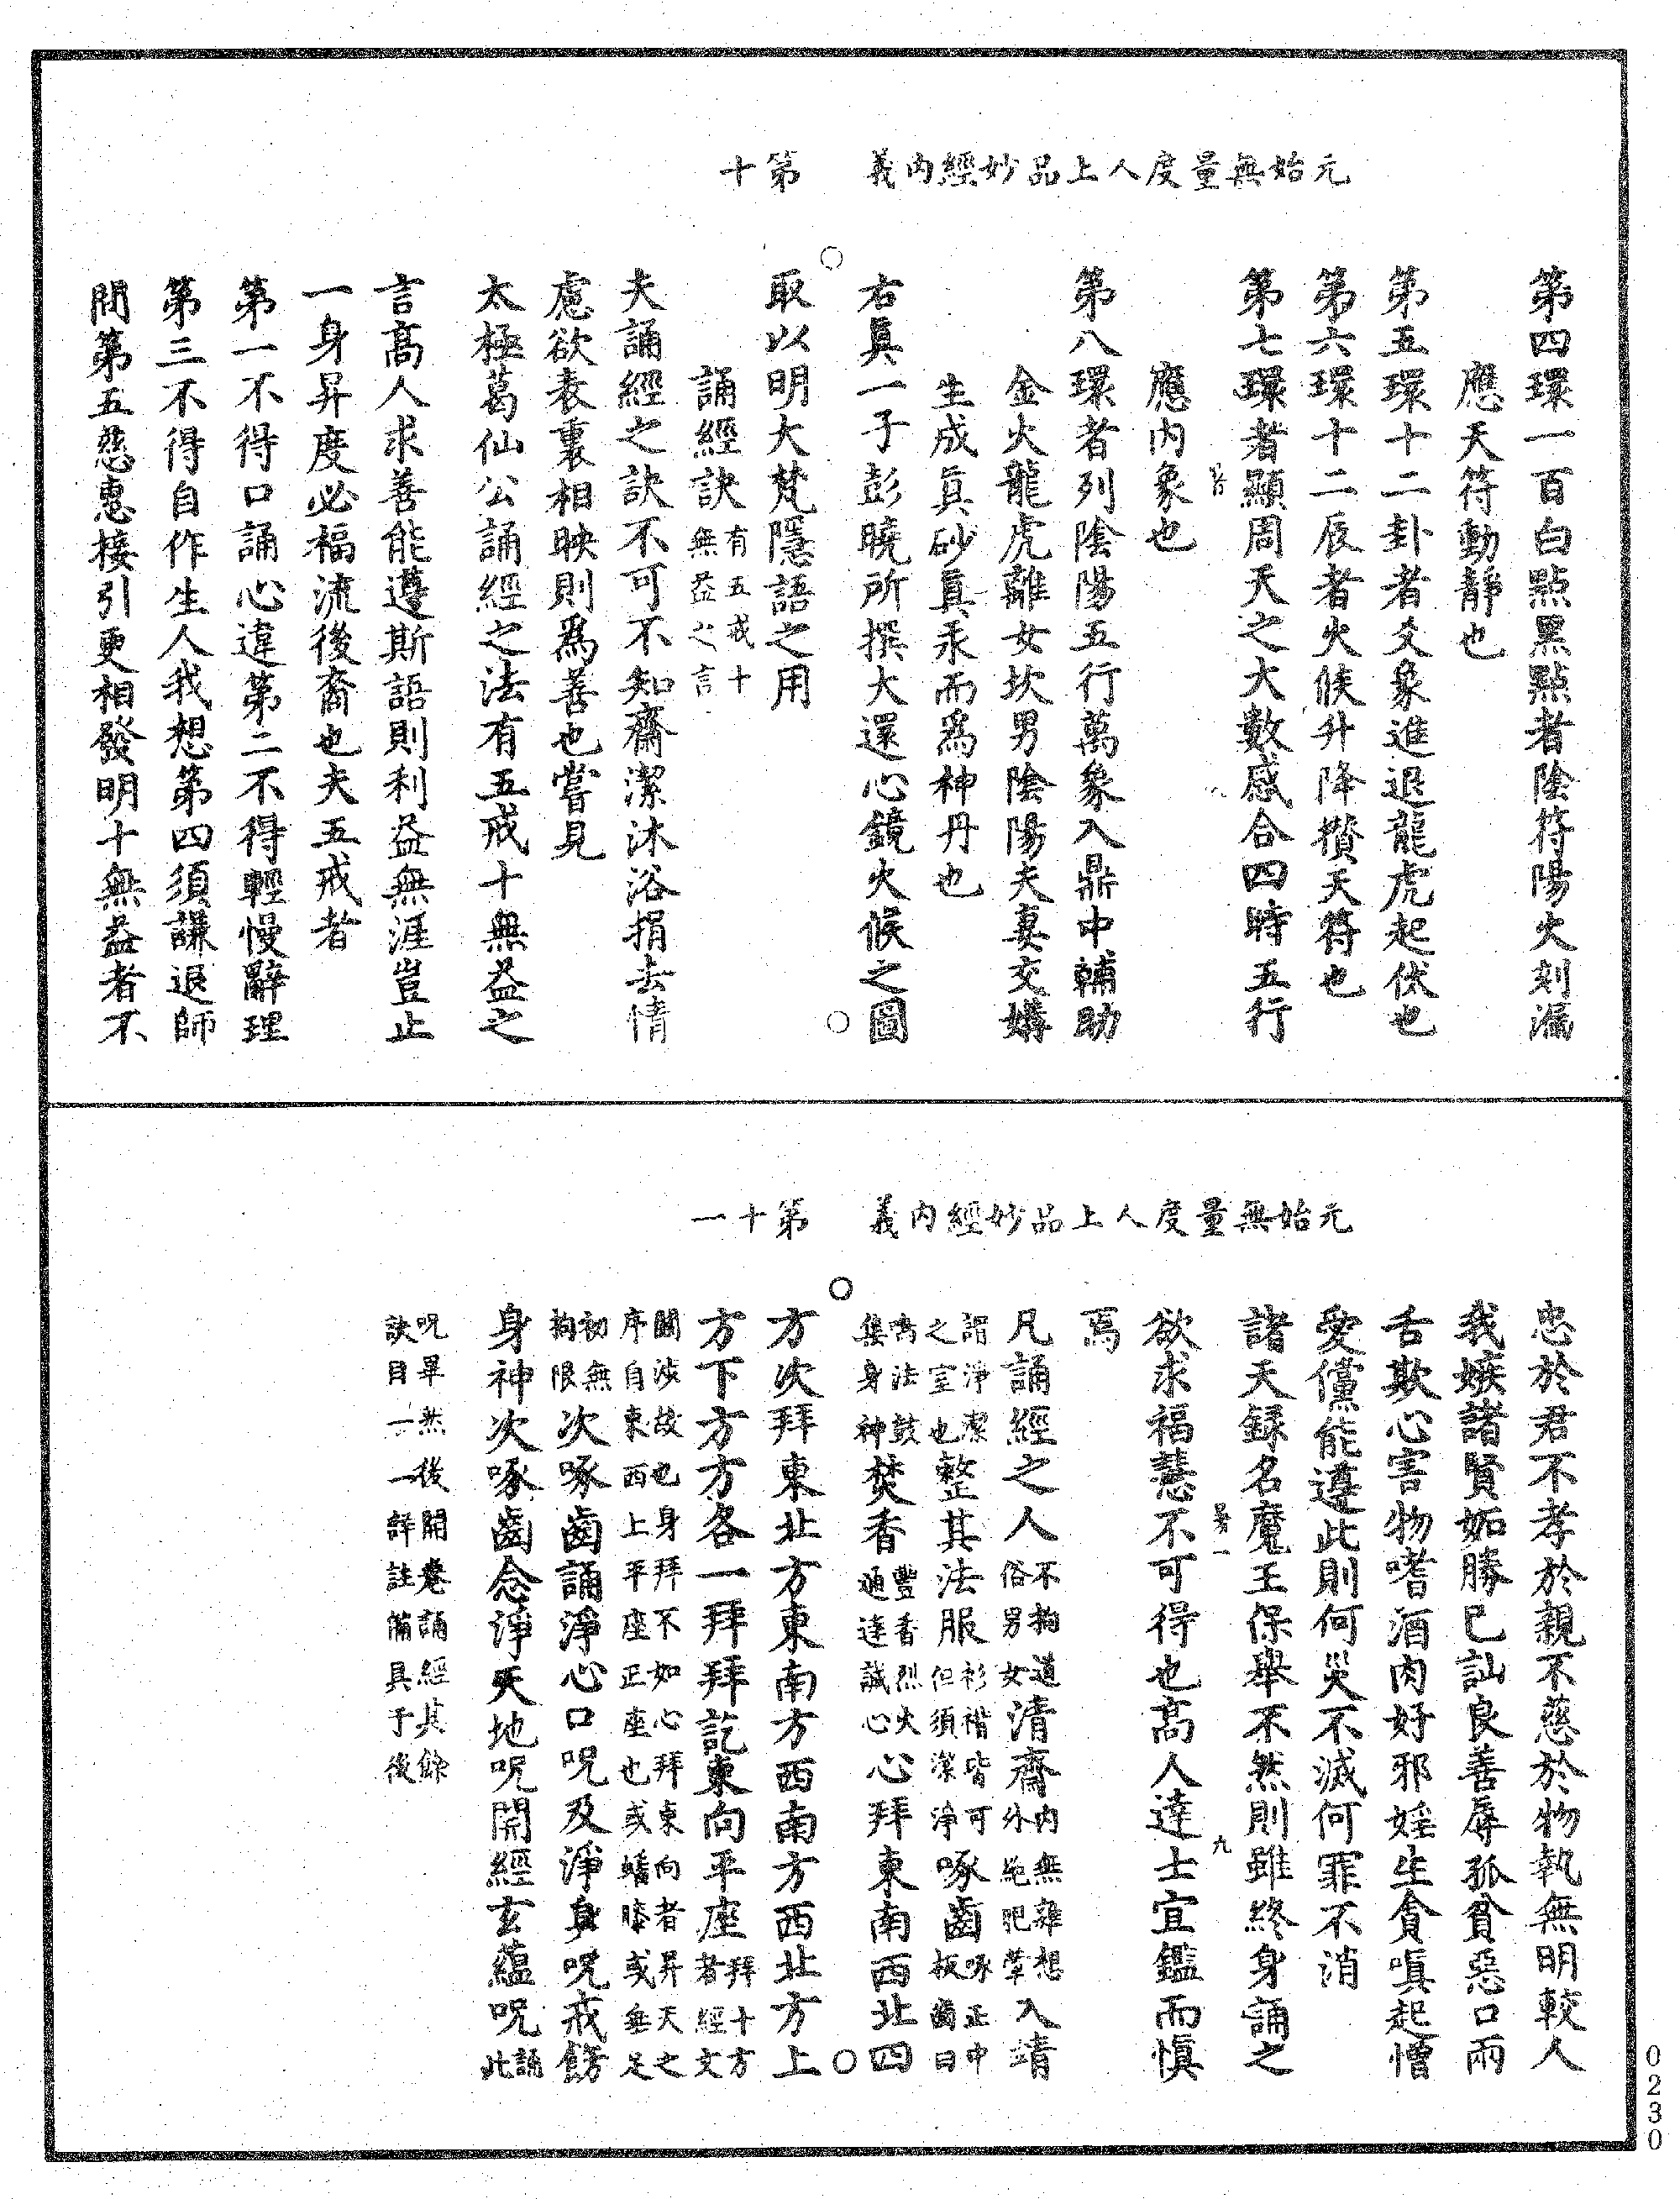 元始無量度人上品妙經內義　第十
第四環一百白點黑點者陰符陽火刻漏
應天符動靜也
第五環十二卦者爻象進退龍虎起伏也
第六環十二辰者火候升降攢天符也
第七環者顯周天之大數感合四時五行
應內象也
第八環者列陰陽五行萬象入鼎中輔助
金火龍虎離女坎男陰陽夫妻交媾
生成眞砂眞汞而爲神丹也
右眞一子彭曉所撰大還心鏡火候之圖
取以明大梵隱語之用
誦經訣有五戒十無益之言
夫誦經之訣不可不知齋潔沐浴捐去情
慮欲表裏相映則爲善也嘗見
太極葛仙公誦經之法有五戒十無益之
言高人求善能遵斯語則利益無涯豈止
一身昇度必福流後裔也夫五戒者
第一不得口誦心違第二不得輕慢辭理
第三不得自作生人我想第四須謙退師
問第五慈惠接引更相發明十無益者不
元始無量度人上品妙經內義　第十一
忠於君不孝於親不慈於物執無明較人
我嫉諸賢妬勝己訕良善辱孤貧惡口兩
舌欺心害物嗜酒肉好邪婬生貪嗔起憎
愛儻能遵此則何災不滅何罪不消
諸天録名魔王保舉不然則雖終身誦之
欲求福慧不可得也高人達士宜鑑而愼
焉
凡誦經之人不拘道俗男女清齋內無雜想外絶肥葷入靖
謂淨潔之室也整其法服衫褶皆可但須潔淨啄齒啄正中板齒曰
鳴法鼓集身神焚香豐香烈火通達誠心心拜東南西北四
方次拜東北方東南方西南方西北方上
方下方方各一拜拜訖東向平座拜十方者經文
關涉故也身拜不如心拜東向者昇天之序自東西上平座正座也或蟠膝或垂足
初無拘限次啄齒誦淨心口呪及淨身呪戒餝
身神次啄齒念淨天地呪開經玄蘊呪誦此
呪畢然後開卷誦經其餘訣目一一詳註備具于後
0230